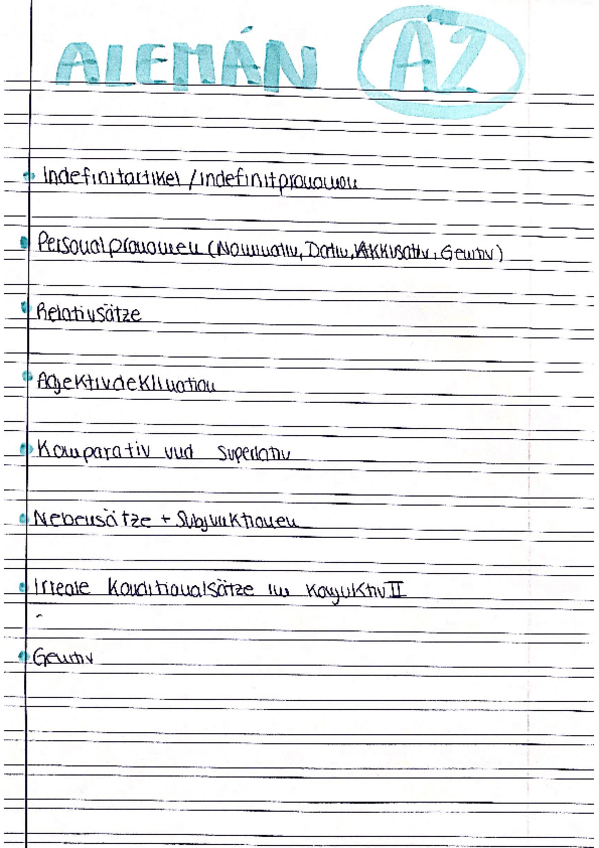 ALEMÁN A2
• Indefinitartikel / Indefinitpronomen
• Personalpronomen (Nominativ, Dativ, Akkusativ, Genitiv)
• Relativsätze
• Adjektivdeklination
• Komparativ und Superlativ
• Nebensätze + Subjunktionen
• Irreale Konditionalsätze im Konjuktiv II
• Genitiv